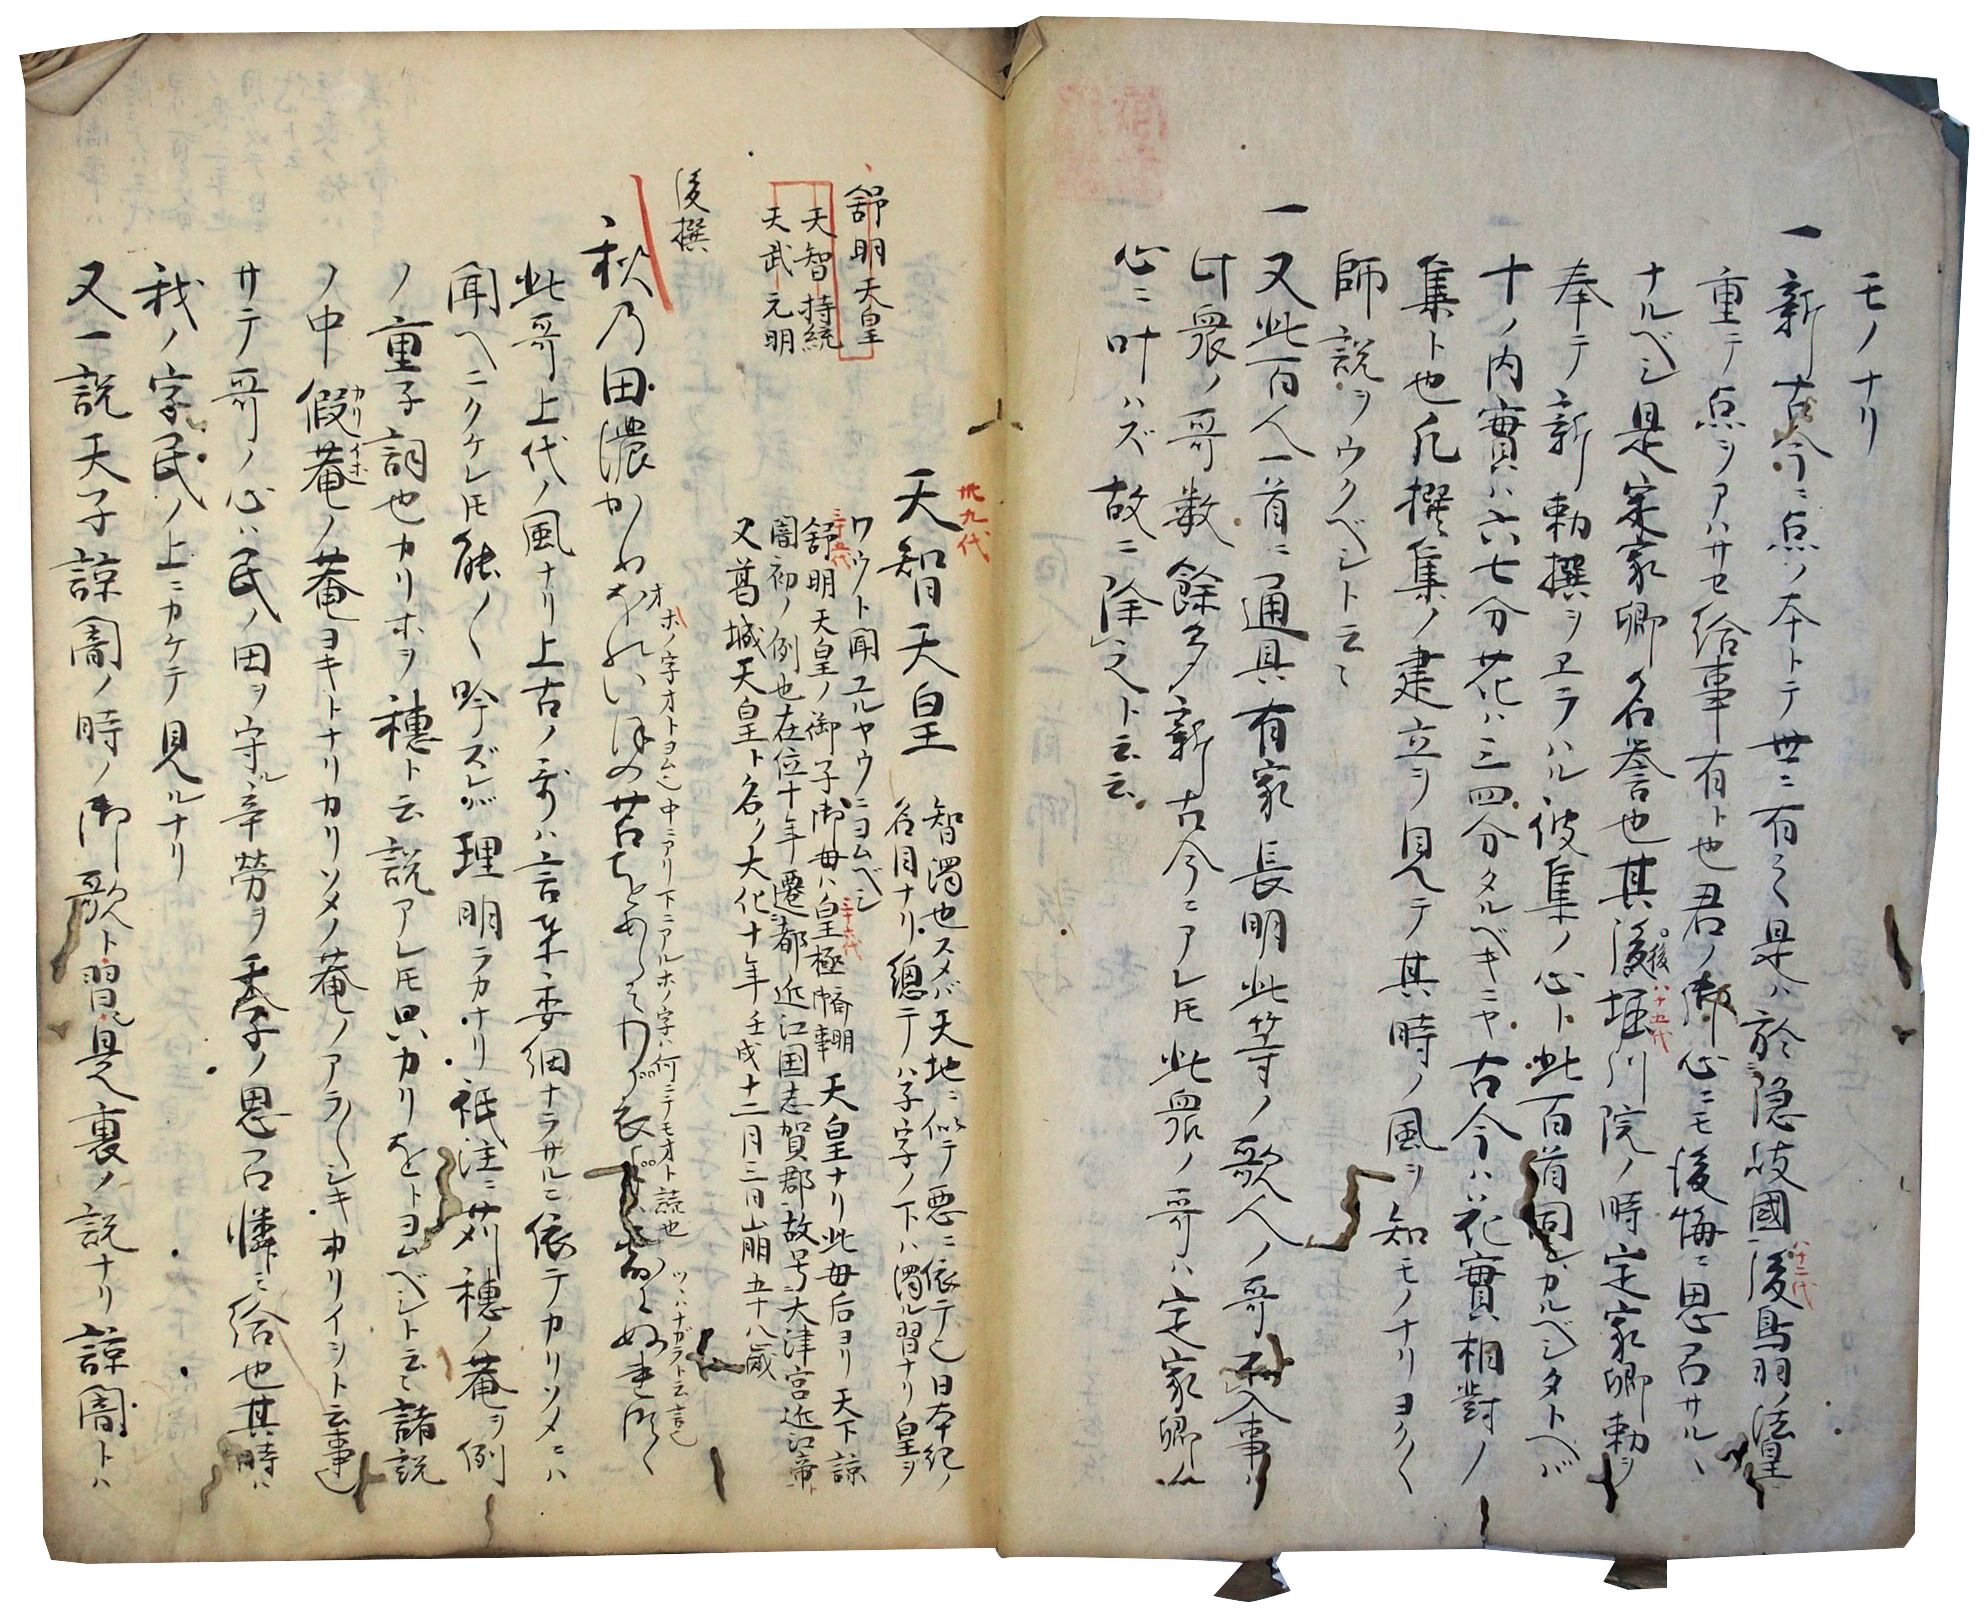 モノナリ
一新古今ニ点ノ本トテ世ニ有之是ハ於隠岐國後鳥羽ノ法皇
八十二代
重テ点ヲアハサセ給事有ト也君ノ御心ニモ後悔ニ思召サルヽ
ナルベシ是定家卿ノ名誉也其後堀川院ノ時定家卿勅ヲ
後八十五代
奉テ新勅撰ヲヱラハル彼集ノ心ト此百首同シカルベシタトヘバ
十ノ内實ハ六七分花ハ三四分タルベキニヤ古今ハ花實相對ノ
集ト也凡撰集ノ建立ヲ見テ其時ノ風ヲ知モノナリヨク〱
師説ヲウクベシト云々
一又此百人一首ニ通具有家長明此等ノ歌人ノ哥不入事ハ
此衆ノ哥数餘多新古今ニアレモ此衆ノ哥ハ定家卿ノ
心ニ叶ハズ故ニ除之ト云云
卅九代
天智天皇
智濁也スメバ天地ニ似テ悪ニ依テ也日本紀ノ
名目ナリ總テハ子字ノ下ハ濁ル習ナリ皇ヲ
ワウト聞ユルヤウニヨムベシ
舒明天皇
天智 持統
天武 元明
三十五代
舒明天皇ノ御子御母ハ皇極齊明天皇ナリ此母后ヨリ天下諒
三十六代
闇初ノ例也在位十年遷都近江国志賀郡故号大津宮近江帝ト
又葛城天皇ト名ク大化十年壬戌十二月三日崩五十八歳
後撰
オホノ字オトヨム也中ニアリ下ニアルホノ字ハ何ニテモオト読也
ツヽハナガラト云言也
秋乃田濃かりほのいほの苫をあらみわが衣手は露にぬれつゝ
此哥上代ノ風ナリ上古ノ哥ハ言葉委細ナラサルニ依テカリソメニハ
聞ヘニクケレモ能〱吟ズレバ理明ラカナリ祇注ニ苅穂ノ菴ヲ例
ノ重子詞也カリホヲ穂ト云説アレモ只カリをトヨムベシト云々諸説
ノ中假菴ノ菴ヨキトナリカリソメノ菴ノアラ〱シキカリイシト云事也
カリイホ
サテ哥ノ心ハ民ノ田ヲ守ル辛勞ヲ天子ノ思召憐ミ給也其時ハ
我ノ字民ノ上ニカケテ見ルナリ
又一説天子諒闇ノ時ノ御歌ト習見是裏ノ説ナリ諒闇トハ